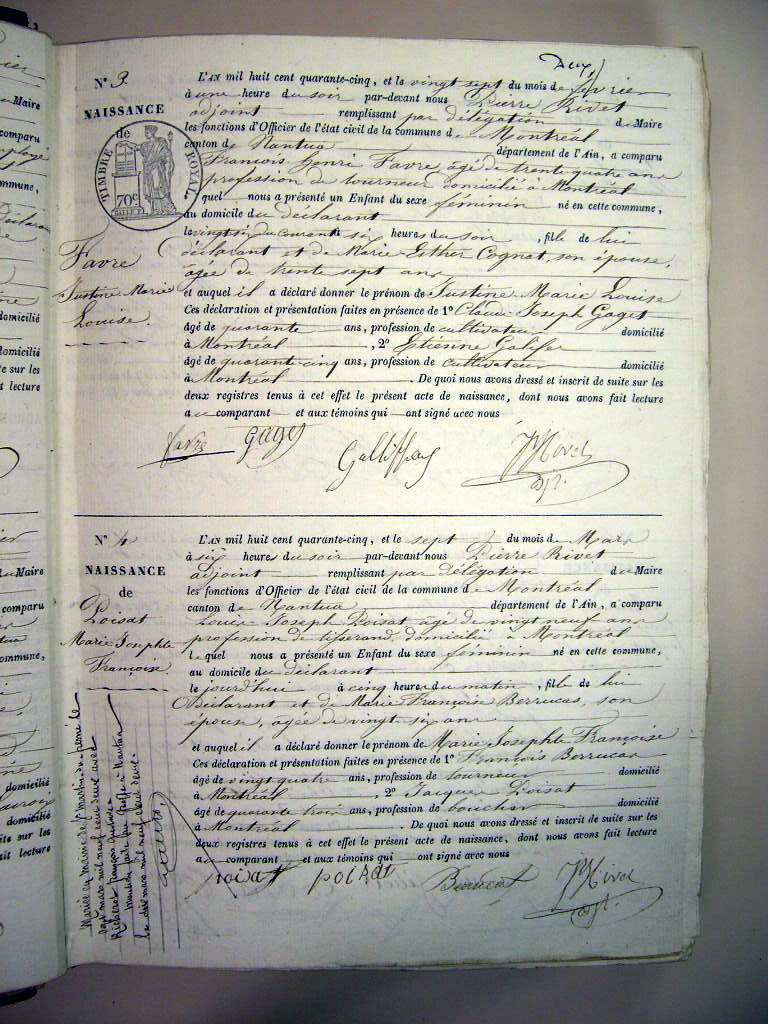 Deux
N° 3.
NAISSANCE
de
TIMBRE ROYAL
70c
Favre
Justine Marie
Louise.
L'AN mil huit cent quarante-cinq, et le vingt sept du mois de février
à une heure du soir par-devant nous Pierre Rivet
adjoint remplissant par délégation du Maire
les fonctions d'Officier de l'état civil de la commune de Montréal
canton de Nantua département de l'Ain, a comparu
François Henri Favre âgé de trente quatre ans
profession de tourneur domicilié à Montréal
lequel nous a présenté un Enfant du sexe feminin né en cette commune,
au domicile du déclarant
le vingt six du courant à six heures du soir, fille de lui
déclarant et de Marie Esther Cognat, son épouse,
agée de trente sept ans
et auquel il a déclaré donner le prénom de Justine Marie Louise
Ces déclaration et présentation faites en présence de 1° Claude Joseph Gaget
âgé de quarante ans, profession de cultivateur domicilié
à Montréal, 2° Etienne Galife
âgé de quarante cinq ans, profession de cultivateur domicilié
à Montréal. De quoi nous avons dressé et inscrit de suite sur les
deux registres tenus à cet effet le présent acte de naissance, dont nous avons fait lecture
au comparant et aux témoins qui ont signé avec nous
favre Gaget
Rivet
adjt.
N° 4
NAISSANCE
de
Poisat
Marie Josephte
Françoise
L'AN mil huit cent quarante-cinq, et le sept du mois de Mars
à six heures du soir par-devant nous Pierre Rivet
adjoint remplissant par délégation du Maire
les fonctions d'Officier de l'état civil de la commune de Montréal
canton de Nantua département de l'Ain, a comparu
Louis Joseph Poisat âgé de vingt neuf ans
profession de tisserand, domicilié à Montréal
lequel nous a présenté un Enfant du sexe feminin né en cette commune,
au domicile du déclarant
le jourd'hui à cinq heures du matin, fille de lui
Déclarant et de Marie Françoise Berrucas, son
épouse, agée de vingt six ans
et auquel il a déclaré donner le prénom de Marie Josephte Françoise
Ces déclaration et présentation faites en présence de 1° François Berrucas
âgé de vingt quatre ans, profession de tourneur domicilié
à Montréal, 2° Jacques Poisat
âgé de quarante trois ans, profession de boucher domicilié
à Montréal. De quoi nous avons dressé et inscrit de suite sur les
deux registres tenus à cet effet le présent acte de naissance, dont nous avons fait lecture
au comparant et aux témoins qui ont signé avec nous
poisat
Rivet
adjt.
Mariée en mairie de St Martin du
sept mars mil neuf cent deux avec
Richerot François